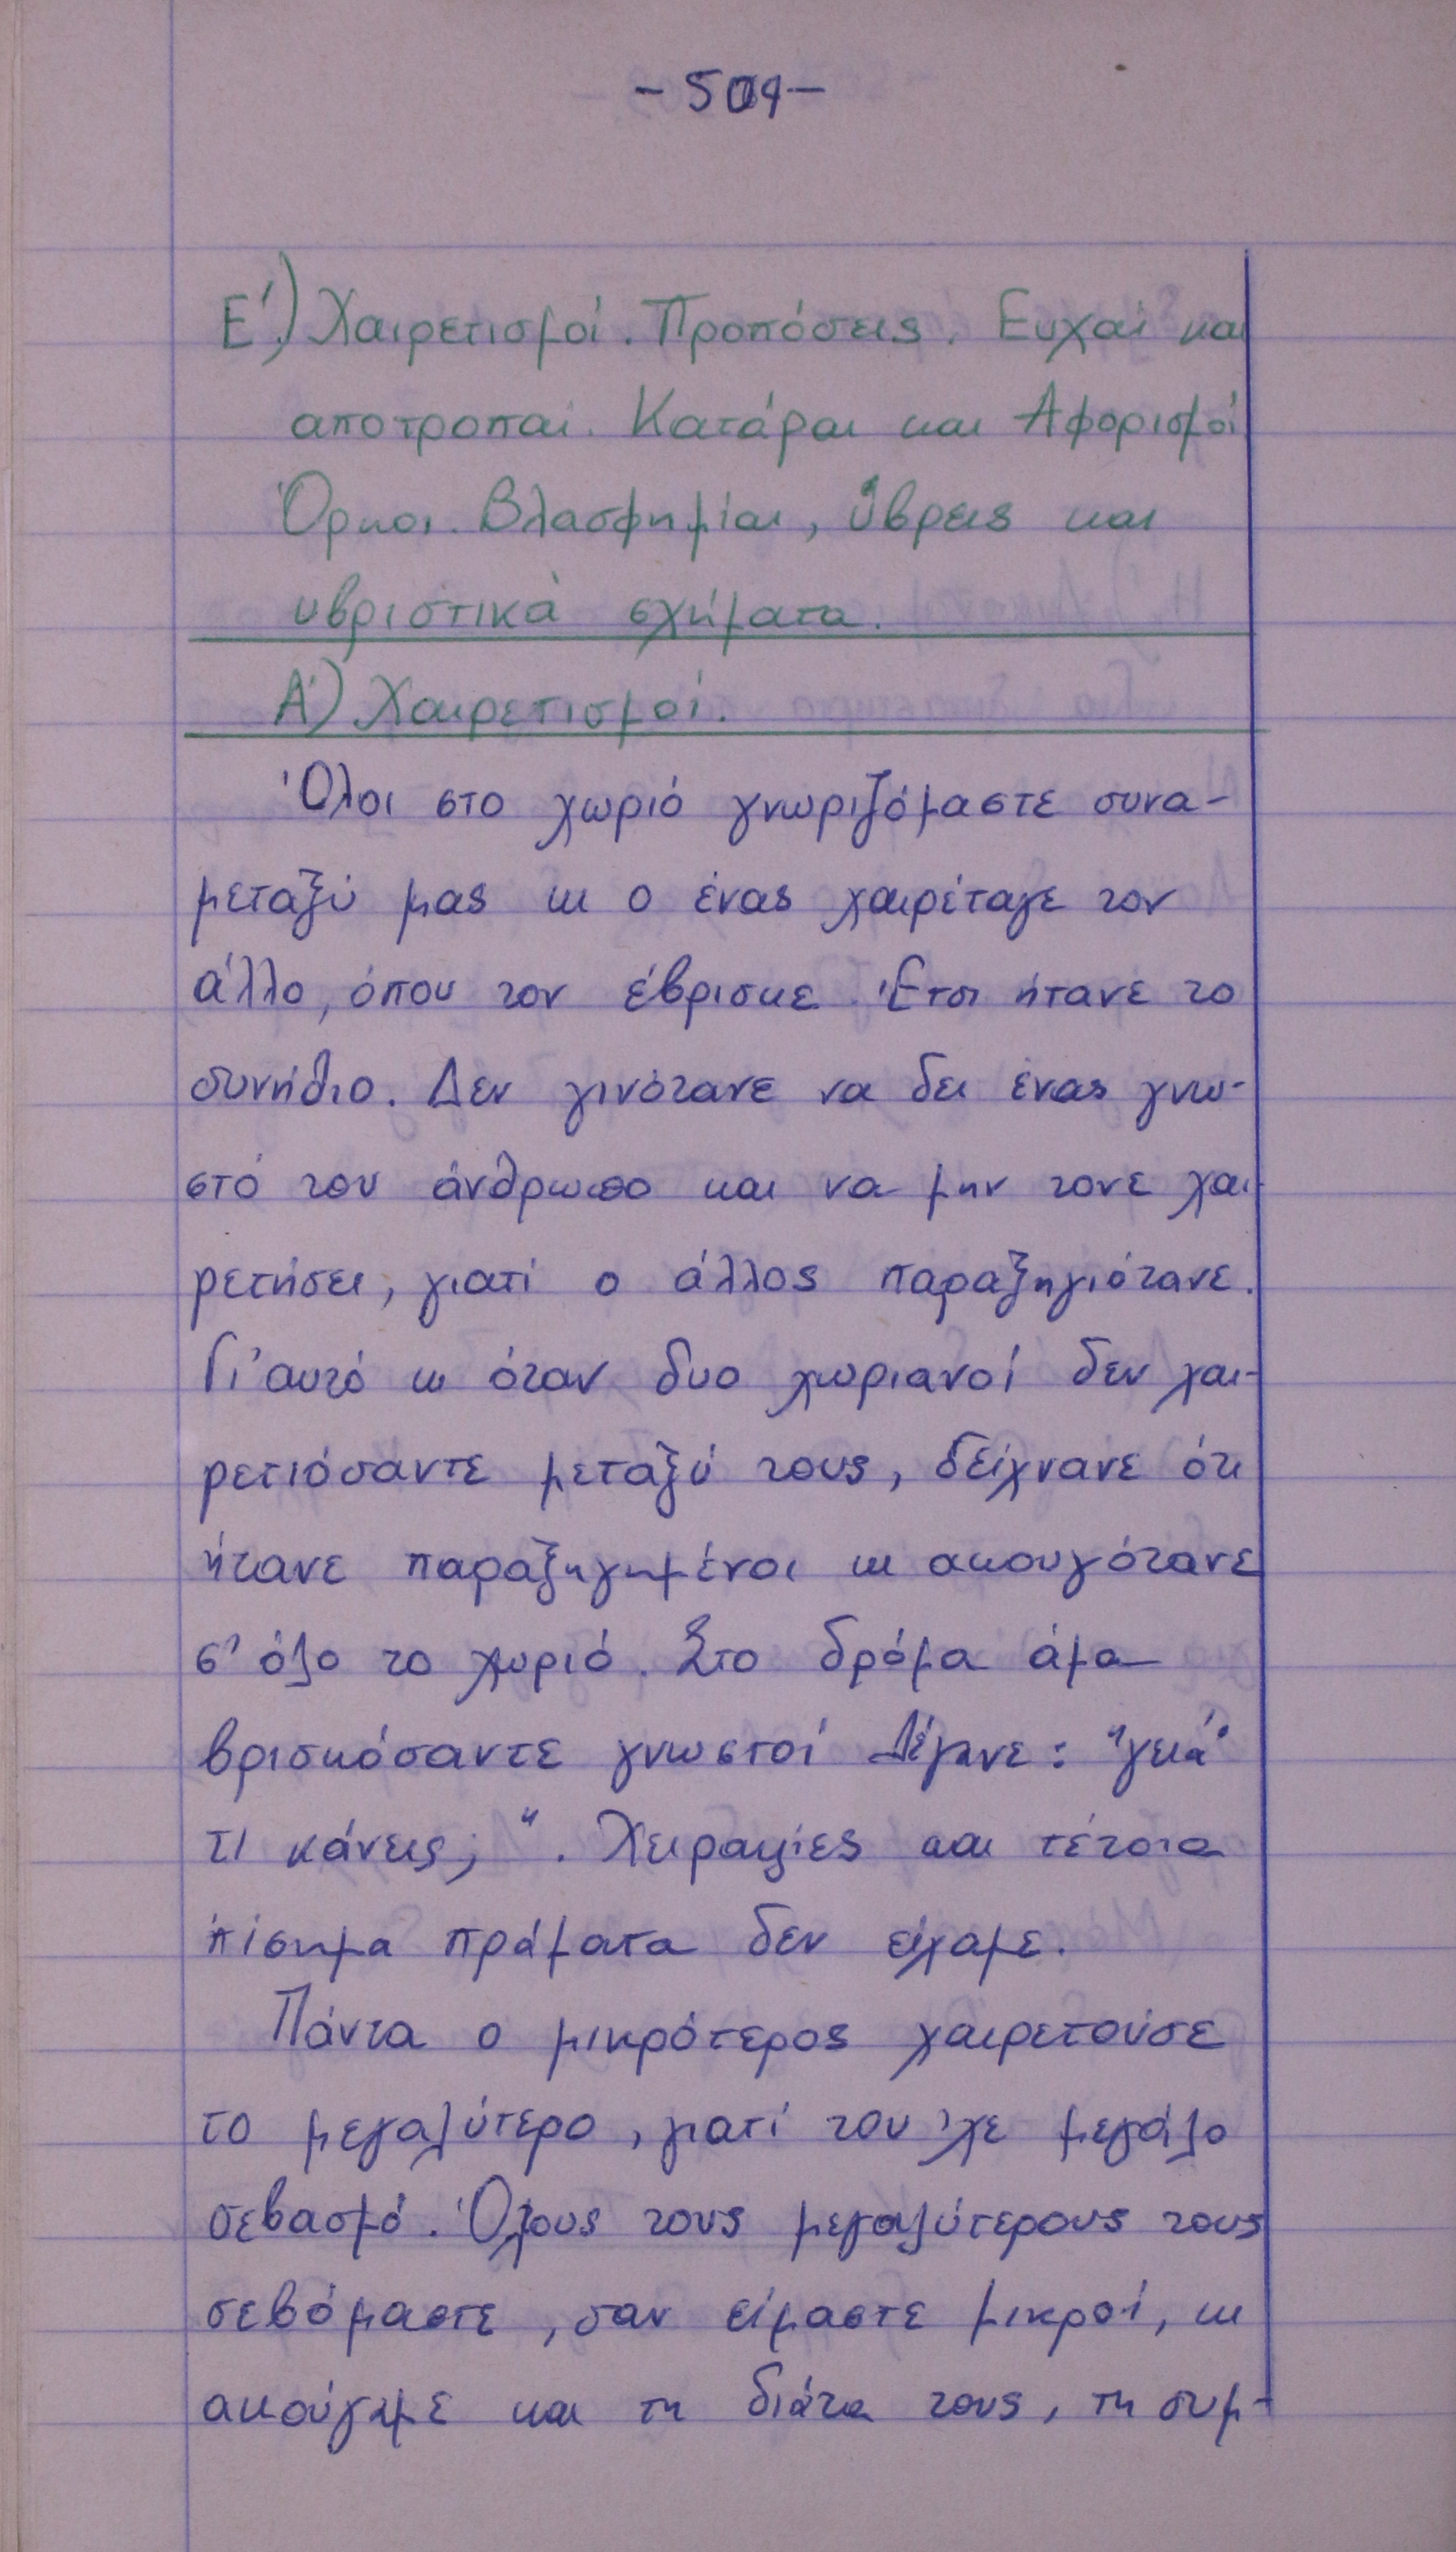 - 509 -
Ε΄.) Χαιρετισμοί. Προπόσεις. Ευχαί και
αποτροπαί. Κατάραι και Αφορισμοί
Όρκοι. Βλασφημίαι, ύβρεις και
υβριστικά σχήματα.
Α΄) Χαιρετισμοί.
Όλοι στο χωριό γνωριζόμαστε συνα-
μεταξύ μας κι ο ένας χαιρέταγε τον
άλλο, όπου τον έβρισκε. Έτσι ήτανε το
συνήθιο. Δεν γινότανε να δει ένας γνω-
στό του άνθρωπο και να μην τονε χαι-
ρετήσει, γιατί ο άλλος παραξηγιότανε.
Γι' αυτό κι όταν δυο χωριανοί δεν χαι-
ρετιόσαντε μεταξύ τους, δείχνανε ότι
ήτανε παραξηγημένοι κι ακουγότανε
σ' όλο το χωριό. Στο δρόμο άμα
βρισκόσαντε γνωστοί λέγανε: "γειά
τι κάνεις;". Χειραψίες και τέτοια
'πίσημα πράματα δεν είχαμε.
Πάντα ο μικρότερος χαιρετούσε
το μεγαλύτερο, γιατί του 'χε μεγάλο
σεβασμό. Όλους τους μεγαλύτερους τους
σεβόμαστε, σαν είμαστε μικροί, κι
ακούγαμε και τη διάτα τους, τη συμ-